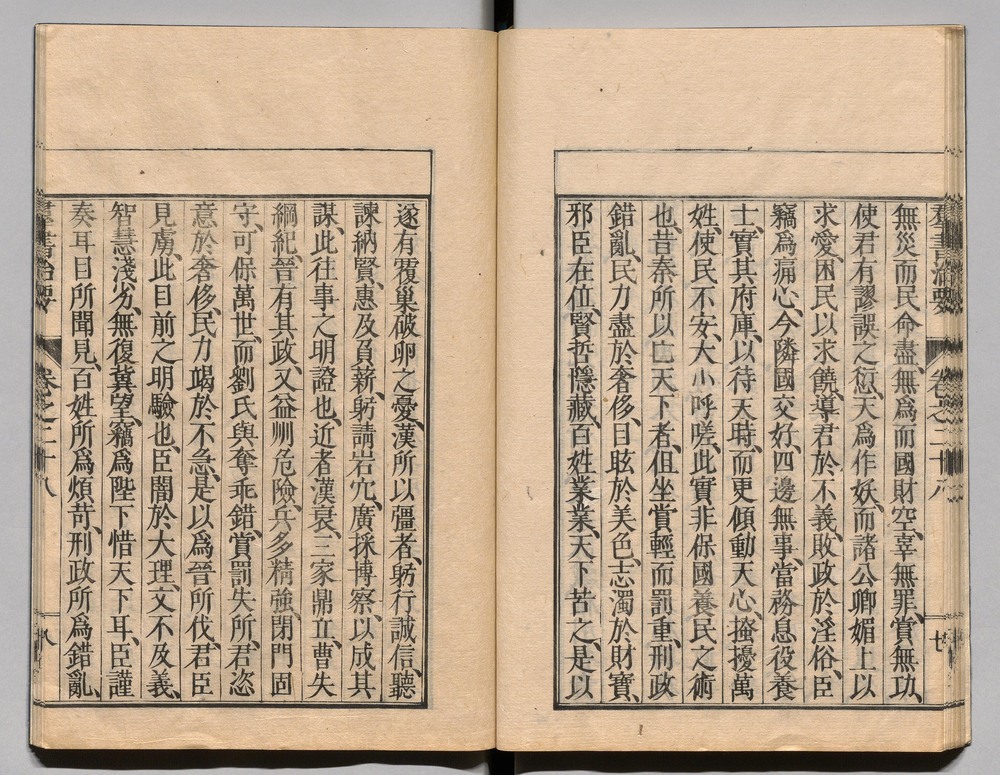 無災而民命盡、無爲而國財空、辜無罪、賞無功、
使君有謬誤之愆、天爲作妖、而諸公卿媚上以
求愛、困民以求饒、導君於不義、敗政於淫俗、臣
竊爲痛心、今隣國交好、四邊無事、當務息役養
士、實其府庫、以待天時、而更傾動天心、掻擾萬
姓、使民不安、大小呼嗟、此實非保國養民之術
也、昔秦所以亡天下者、但坐賞輕而罰重、刑政
錯亂、民力盡於奢侈、目眩於美色、志濁於財寶、
邪臣在位、賢哲隱藏、百姓業業、天下苦之、是以
遂有覆巢破卵之憂、漢所以彊者、躬行誠信、聽
諫納賢、惠及負薪、躬請岩穴、廣採博察、以成其
謀、此往事之明證也、近者漢衰、三家鼎立、曹失
綱紀、晉有其政、又益州危險、兵多精強、閉門固
守、可保萬世、而劉氏與奪乖錯、賞罰失所、君恣
意於奢侈、民力竭於不急、是以爲晉所伐、君臣
見虜、此目前之明驗也、臣闇於大理、文不及義、
智慧淺劣、無復冀望、竊爲陛下惜天下耳、臣謹
奏耳目所聞見、百姓所爲煩苛、刑政所爲錯亂、
羣書治要 卷之二十八